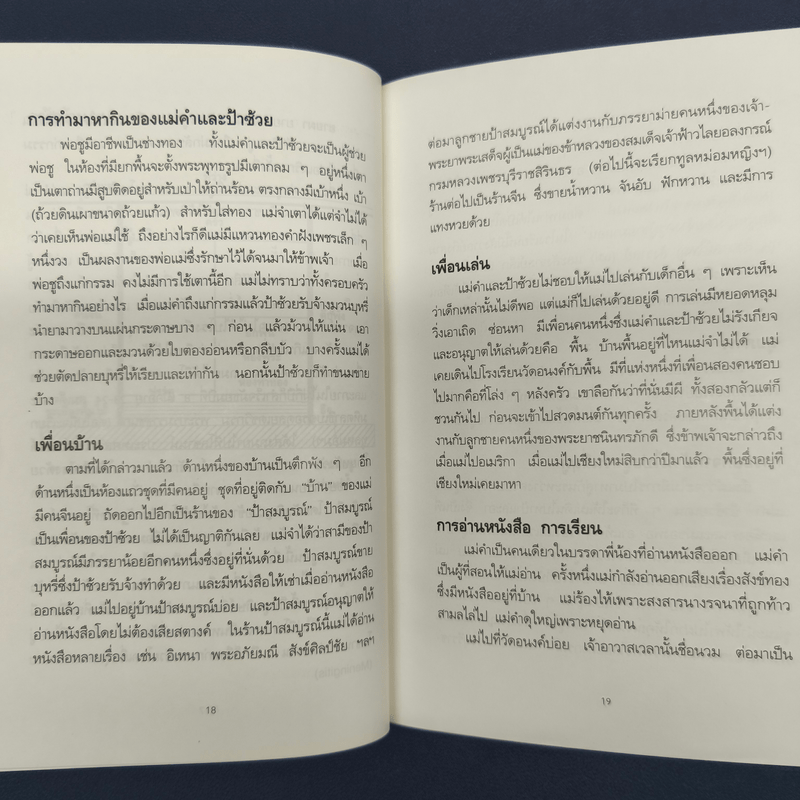 การทำมาหากินของแม่คำและป้าซ้วย
พ่อชูมีอาชีพเป็นช่างทอง ทั้งแม่คำและป้าซ้วยจะเป็นผู้ช่วย
พ่อชู ในห้องที่มียกพื้นจะตั้งพระพุทธรูปมีเตากลม ๆ อยู่หนึ่งเตา
เป็นเตาถ่านมีสูบติดอยู่สำหรับเป่าให้ถ่านร้อน ตรงกลางมีเบ้าหนึ่ง เบ้า
(ถ้วยดินเผาขนาดถ้วยแก้ว) สำหรับใส่ทอง แม่จำเตาได้แต่จำไม่ได้
ว่าเคยเห็นพ่อแม่ใช้ ถึงอย่างไรก็ดีแม่มีแหวนทองคำฝังเพชรเล็ก ๆ
หนึ่งวง เป็นผลงานของพ่อแม่ซึ่งรักษาไว้ได้จนมาให้ข้าพเจ้า เมื่อ
พ่อชูถึงแก่กรรม คงไม่มีการใช้เตานี้อีก แม่ไม่ทราบว่าทั้งครอบครัว
ทำมาหากินอย่างไร เมื่อแม่คำถึงแก่กรรมแล้วป้าซ้วยรับจ้างมวนบุหรี่
นำยามาวางบนแผ่นกระดาษบาง ๆ ก่อน แล้วม้วนให้แน่น เอา
กระดาษออกและมวนด้วยใบตองอ่อนหรือกลีบบัว บางครั้งแม่ได้
ช่วยตัดปลายบุหรี่ให้เรียบและเท่ากัน นอกนั้นป้าซ้วยก็ทำขนมขาย
บ้าง
เพื่อนบ้าน
ตามที่ได้กล่าวมาแล้ว ด้านหนึ่งของบ้านเป็นตึกพัง ๆ อีก
ด้านหนึ่งเป็นห้องแถวชุดที่มีคนอยู่ ชุดที่อยู่ติดกับ "บ้าน" ของแม่
มีคนจีนอยู่ ถัดออกไปอีกเป็นร้านของ "ป้าสมบูรณ์" ป้าสมบูรณ์
เป็นเพื่อนของป้าซ้วย ไม่ได้เป็นญาติกันเลย แม่จำได้ว่าสามีของป้า
สมบูรณ์มีภรรยาน้อยอีกคนหนึ่งซึ่งอยู่ที่นั่นด้วย ป้าสมบูรณ์ขาย
บุหรี่ซึ่งป้าซ้วยรับจ้างทำด้วย และมีหนังสือให้เช่าเมื่ออ่านหนังสือ
ออกแล้ว แม่ไปอยู่บ้านป้าสมบูรณ์บ่อย และป้าสมบูรณ์อนุญาตให้
อ่านหนังสือโดยไม่ต้องเสียสตางค์ ในร้านป้าสมบูรณ์นี้แม่ได้อ่าน
หนังสือหลายเรื่อง เช่น อิเหนา พระอภัยมณี สังข์ศิลป์ชัย ฯลฯ
18
ต่อมาลูกชายป้าสมบูรณ์ได้แต่งงานกับภรรยาม่ายคนหนึ่งของเจ้า-
พระยาพระเสด็จผู้เป็นแม่ของข้าหลวงของสมเด็จเจ้าฟ้าวไลยอลงกรณ์
กรมหลวงเพชรบุรีราชสิรินธร (ต่อไปนี้จะเรียกทูลหม่อมหญิงฯ)
ร้านต่อไปเป็นร้านจีน ซึ่งขายน้ำหวาน จันอับ ฟักหวาน และมีการ
แทงหวยด้วย
เพื่อนเล่น
แม่คำและป้าซ้วยไม่ชอบให้แม่ไปเล่นกับเด็กอื่น ๆ เพราะเห็น
ว่าเด็กเหล่านั้นไม่ดีพอ แต่แม่ก็ไปเล่นด้วยอยู่ดี การเล่นมีหยอดหลุม
วิ่งเอาเถิด ซ่อนหา มีเพื่อนคนหนึ่งซึ่งแม่คำและป้าซ้วยไม่รังเกียจ
และอนุญาตให้เล่นด้วยคือ พื้น บ้านพื้นอยู่ที่ไหนแม่จำไม่ได้ แม่
เคยเดินไปโรงเรียนวัดอนงค์กับพื้น มีที่แห่งหนึ่งที่เพื่อนสองคนชอบ
ไปมากคือที่โล่ง ๆ หลังครัว เขาลือกันว่าที่นั่นมีผี ทั้งสองกลัวแต่ก็
ชวนกันไป ก่อนจะเข้าไปสวดมนต์กันทุกครั้ง ภายหลังพื้นได้แต่ง
งานกับลูกชายคนหนึ่งของพระยาชนินทรภักดี ซึ่งข้าพเจ้าจะกล่าวถึง
เมื่อแม่ไปอเมริกา เมื่อแม่ไปเชียงใหม่สิบกว่าปีมาแล้ว พื้นซึ่งอยู่ที่
เชียงใหม่เคยมาหา
การอ่านหนังสือ การเรียน
แม่คำเป็นคนเดียวในบรรดาพี่น้องที่อ่านหนังสือออก แม่คำ
เป็นผู้ที่สอนให้แม่อ่าน ครั้งหนึ่งแม่กำลังอ่านออกเสียงเรื่องสังข์ทอง
ซึ่งมีหนังสืออยู่ที่บ้าน แม่ร้องไห้เพราะสงสารนางรจนาที่ถูกท้าว
สามลไล่ไป แม่คำดุใหญ่เพราะหยุดอ่าน
แม่ไปที่วัดอนงค์บ่อย เจ้าอาวาสเวลานั้นชื่อนวม ต่อมาเป็น
19